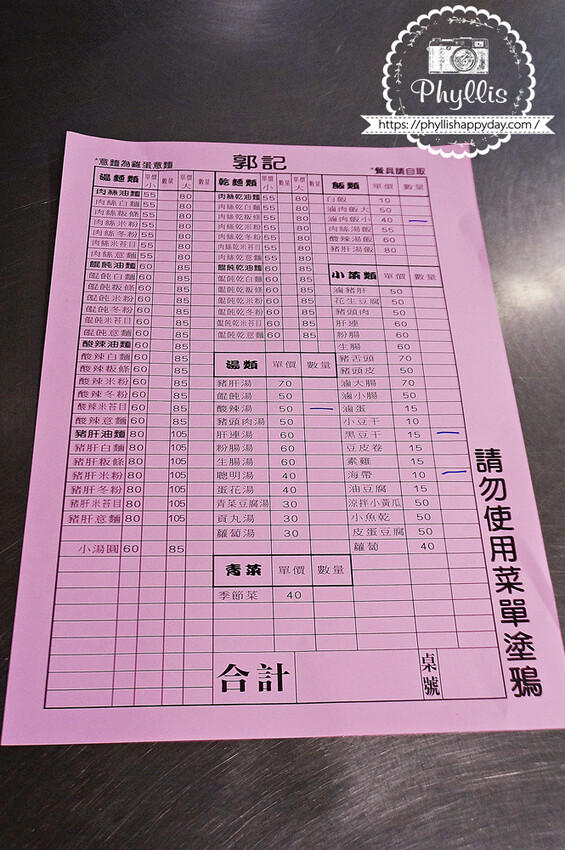 Phyllis
https://phyllishappyday.com/
郭記
*意麵為雞蛋意麵
*餐具請自取
湯麵類 單價小 數量 單價大 數量
肉絲油麵 55 80
肉絲白麵 55 80
肉絲粄條 55 80
肉絲米粉 55 80
肉絲冬粉 55 80
肉絲米苔目 55 80
肉絲意麵 55 80
餛飩油麵 60 85
餛飩白麵 60 85
餛飩粄條 60 85
餛飩米粉 60 85
餛飩冬粉 60 85
餛飩米苔目 60 85
餛飩意麵 60 85
酸辣油麵 60 85
酸辣白麵 60 85
酸辣粄條 60 85
酸辣米粉 60 85
酸辣冬粉 60 85
酸辣米苔目 60 85
酸辣意麵 60 85
豬肝油麵 80 105
豬肝白麵 80 105
豬肝粄條 80 105
豬肝米粉 80 105
豬肝冬粉 80 105
豬肝米苔目 80 105
豬肝意麵 80 105
小湯圓 60 85
乾麵類 單價小 數量 單價大 數量
肉絲乾油麵 55 80
肉絲乾白麵 55 80
肉絲乾粄條 55 80
肉絲乾冬粉 55 80
肉絲乾米苔目 55 80
肉絲乾意麵 55 80
餛飩乾油麵 60 85
餛飩乾白麵 60 85
餛飩乾粄條 60 85
餛飩乾米粉 60 85
餛飩乾冬粉 60 85
餛飩乾米苔目 60 85
餛飩乾意麵 60 85
湯類 單價 數量
豬肝湯 70
餛飩湯 50
酸辣湯 50
豬頭肉湯 50
肝連湯 60
粉腸湯 60
生腸湯 60
聰明湯 40
蛋花湯 40
青菜豆腐湯 30
貢丸湯 30
蘿蔔湯 30
青菜 單價 數量
季節菜 40
飯類 單價 數量
白飯 10
滷肉飯大 50
滷肉飯小 40
肉絲湯飯 80
酸辣湯飯 60
豬肝湯飯 80
小菜類 單價 數量
滷豬肝 50
花生豆腐 50
豬頭肉 50
肝連 60
粉腸 60
生腸 60
豬舌頭 70
豬頭皮 50
滷大腸 70
滷小腸 50
滷蛋 15
小豆干 10
黑豆干 15
豆皮卷 15
素雞 15
海帶 10
油豆腐 15
涼拌小黃瓜 50
小魚乾 50
皮蛋豆腐 50
蘿蔔 40
合計
桌號
請勿使用菜單塗鴉